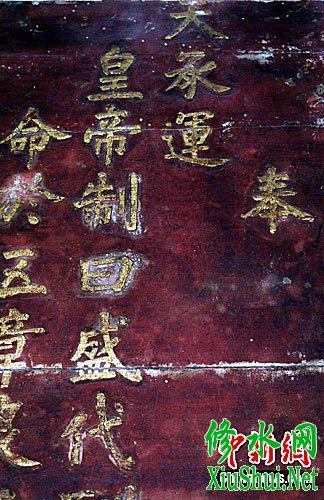 奉
天承運
皇帝制曰盛代
命於五章
修水网
XiuShui.Net